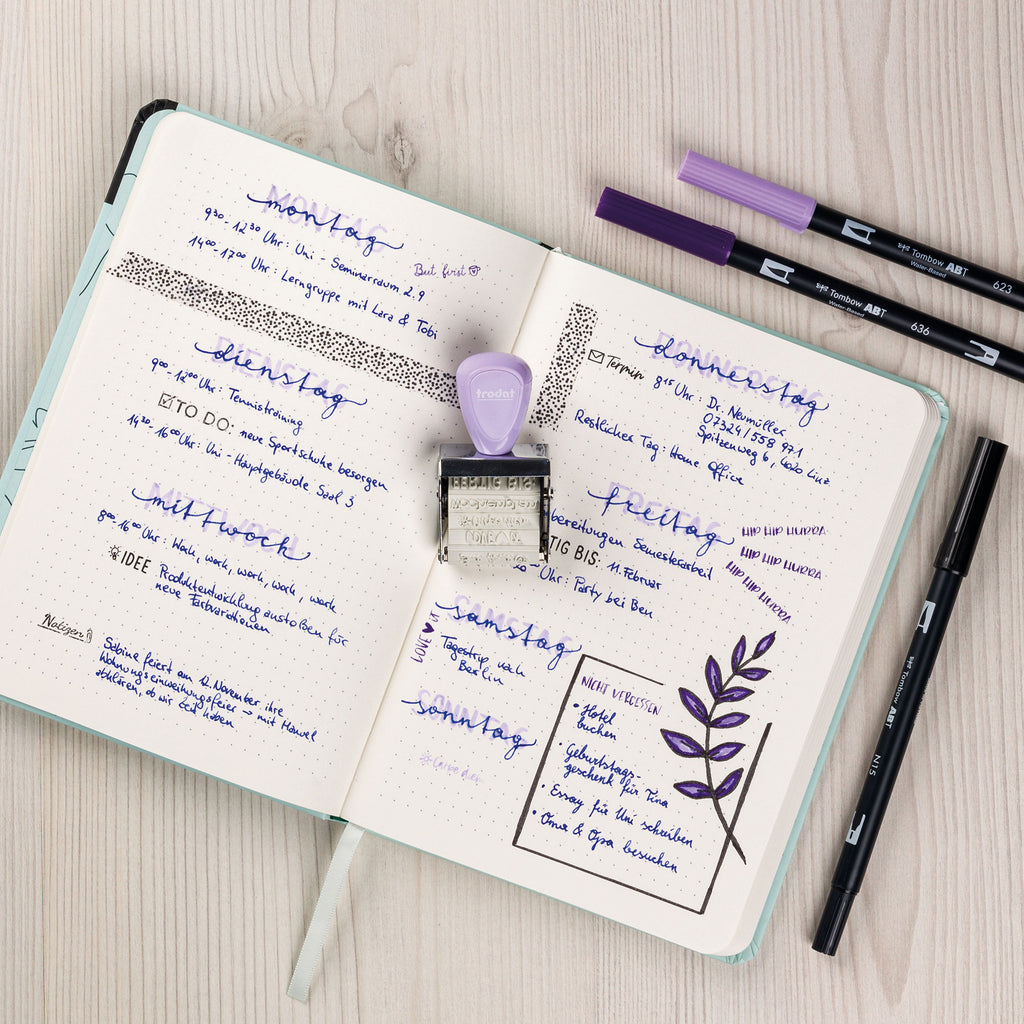 MONTAG
montag
9³⁰ - 12³⁰ Uhr: Uni - Seminarraum 2.9
14⁰⁰ - 17⁰⁰ Uhr: Lerngruppe mit Lara & Tobi
But first
DIENSTAG
dienstag
9⁰⁰ - 12⁰⁰ Uhr: Tennistraining
TO DO: neue Sportschuhe besorgen
14³⁰ - 16⁰⁰ Uhr: Uni - Hauptgebäude Saal 3
MITTWOCH
mittwoch
8⁰⁰ - 16⁰⁰ Uhr: Work, work, work, work, work
IDEE Produktentwicklung anstoßen für
neue Farbvariationen
Notizen
Sabine feiert am 12. November ihre
Wohnungseinweihungsfeier → mit Manuel
abklären, ob wir Zeit haben
trodat
DONNERSTAG
donnerstag
Termin 8¹⁵ Uhr: Dr. Neumüller
07324/558 971
Spitzenweg 6, 4020 Linz
Restlicher Tag: Home Office
FREITAG
freitag
bereitungen Semesterarbeit
TIG BIS: 11. Februar
Uhr: Party bei Ben
HIP HIP HURRA
HIP HIP HURRA
HIP HIP HURRA
SAMSTAG
samstag
LOVE IT
Tagestrip nach
Berlin
SONNTAG
sonntag
Carpe diem
NICHT VERGESSEN
• Hotel
buchen
• Geburtstags-
geschenk für Tina
• Essay für Uni schreiben
• Oma & Opa besuchen
Tombow ABT
Water-Based
623
Tombow ABT
Water-Based
636
Tombow ABT
N15